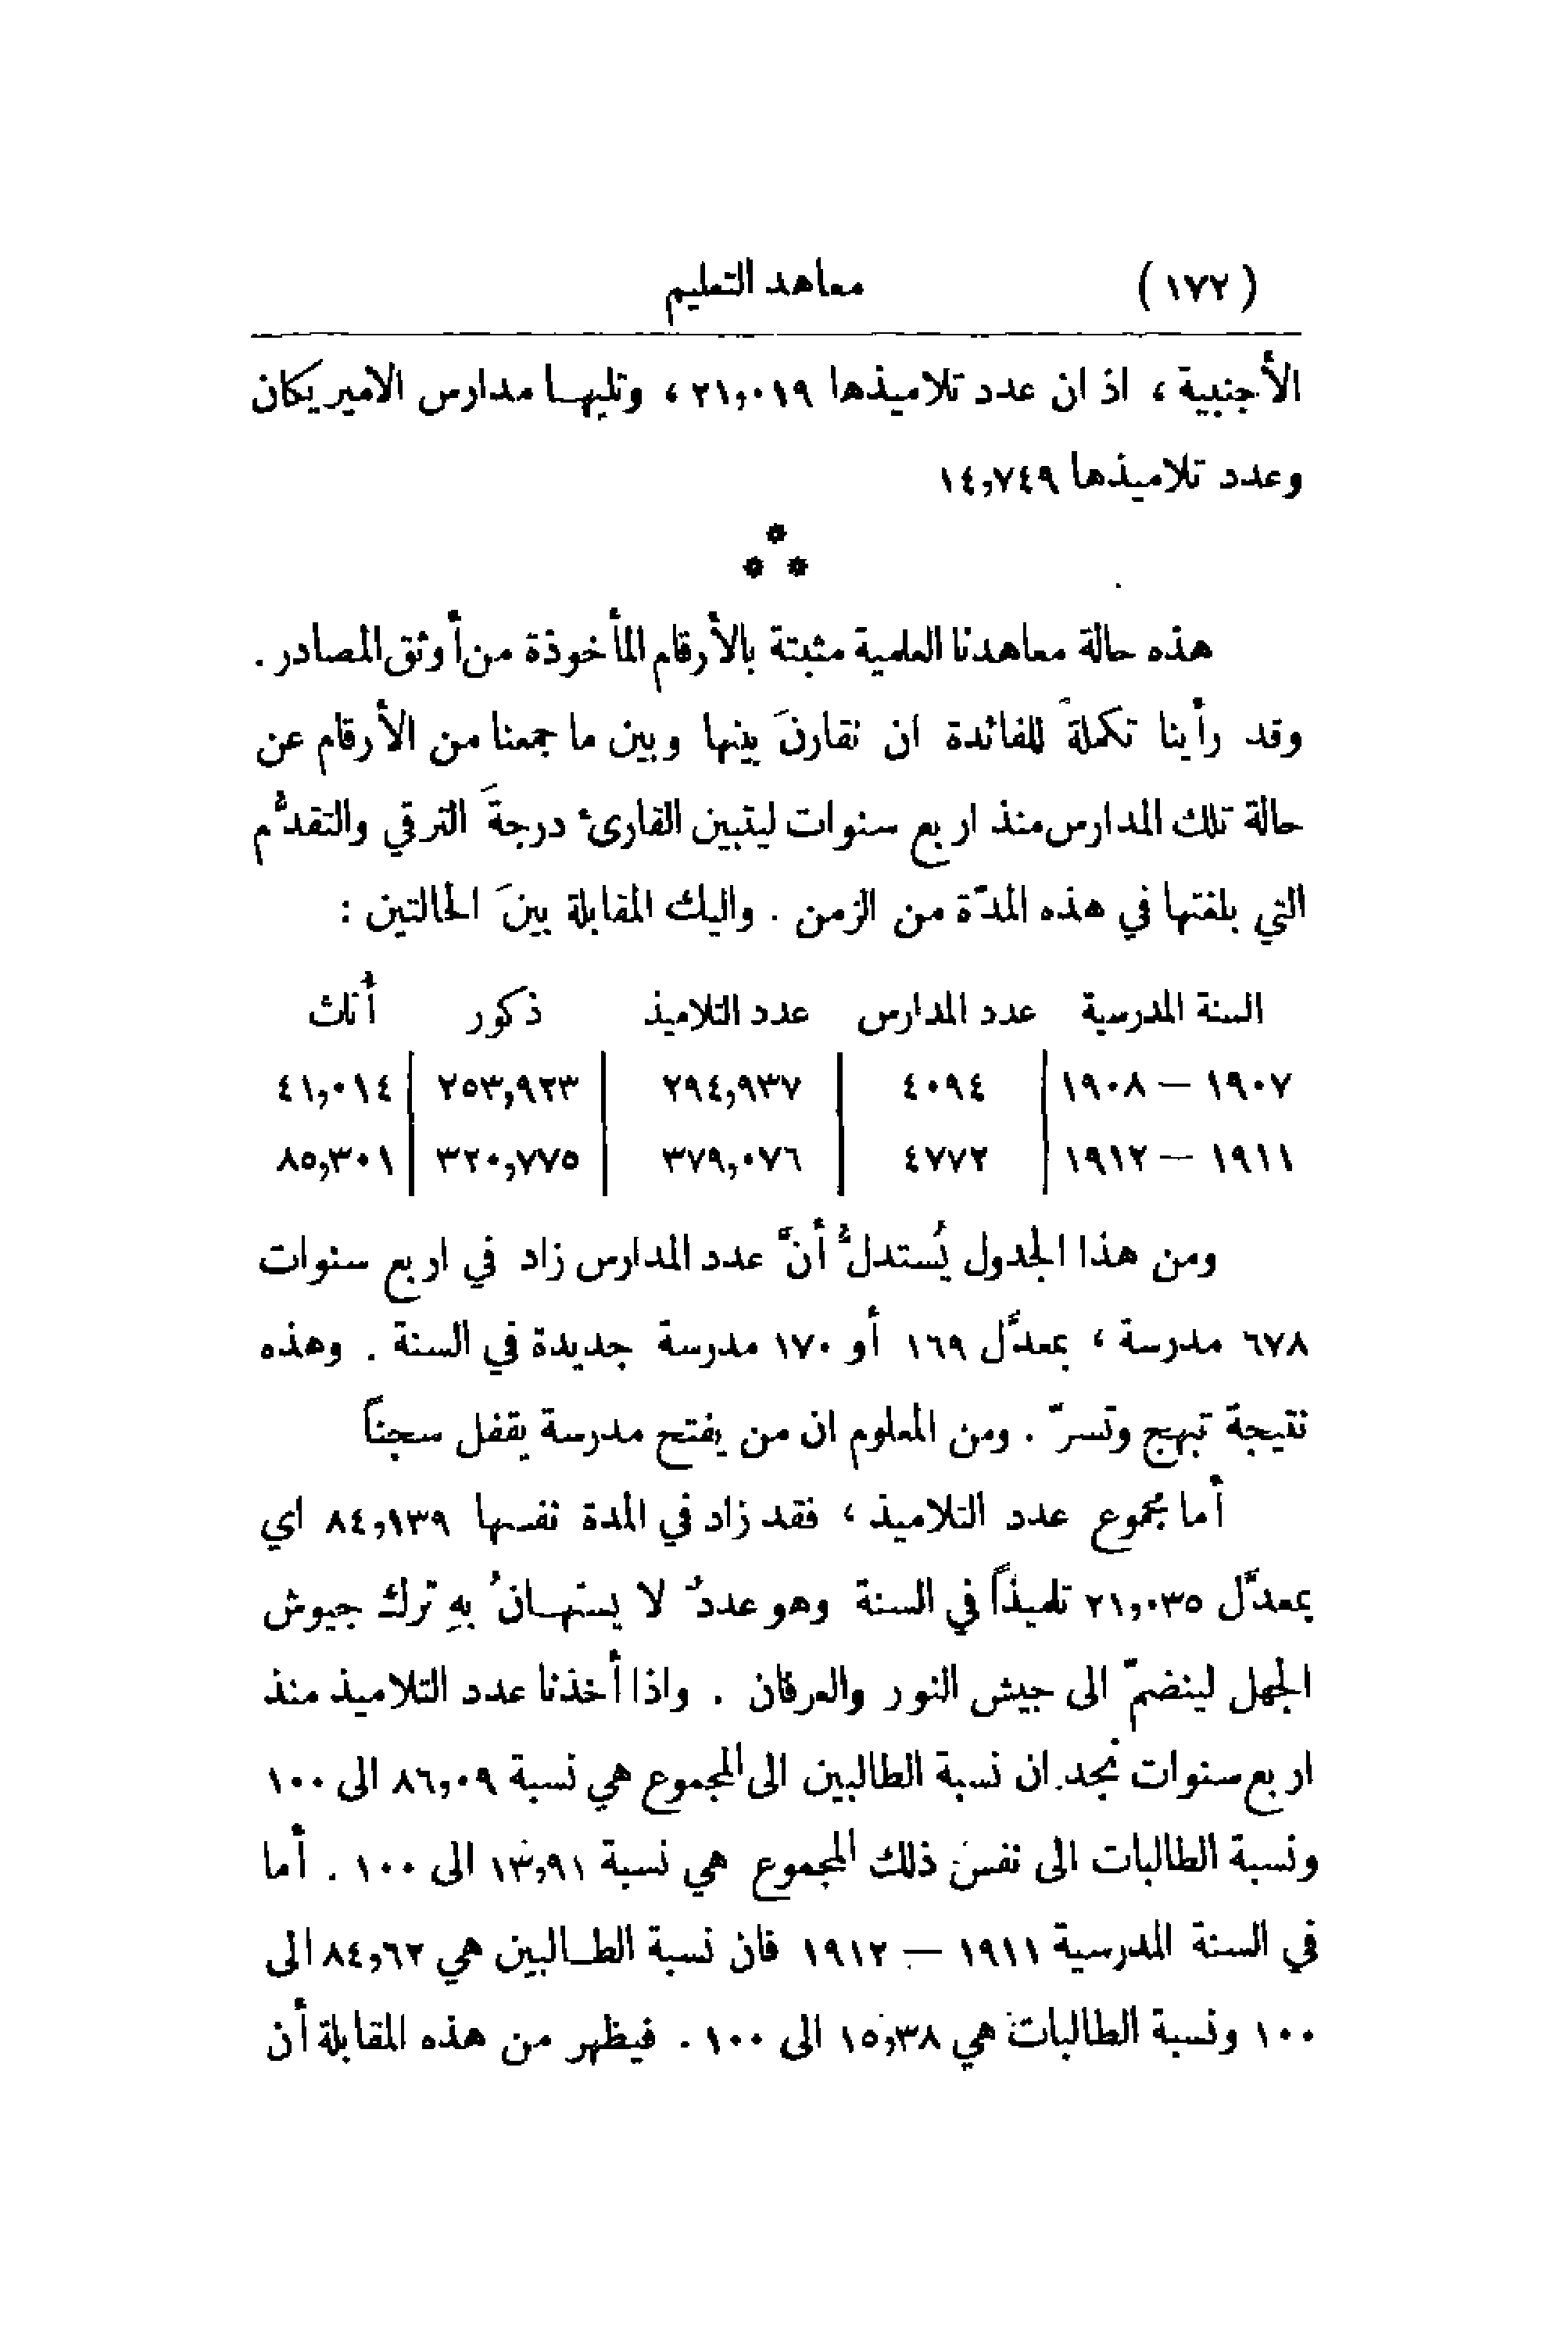 (١٧٢) معاهد التعليم
الأجنبية ، اذ ان عدد تلاميذها ٢١,٠١٩ ، وتليهـا مدارس الاميريكان
وعدد تلاميذها ١٤,٧٤٩
*
* *
هذه حالة معاهدنا العلمية مثبتة بالأرقام المأخوذة من أوثق المصادر .
وقد رأينا تكملةً للفائدة ان نقارنَ بينها وبين ما جمعنا من الأرقام عن
حالة تلك المدارس منذ اربع سنوات ليتبين القارئ درجةَ الترقي والتقدُّم
التي بلغتها في هذه المدّة من الزمن . واليك المقابلة بينَ الحالتين :
السنة المدرسية عدد المدارس عدد التلاميذ ذكور أناث
١٩٠٧ — ١٩٠٨ ٤٠٩٤ ٢٩٤,٩٣٧ ٢٥٣,٩٢٣ ٤١,٠١٤
١٩١١ — ١٩١٢ ٤٧٧٢ ٣٧٩,٠٧٦ ٣٢٠,٧٧٥ ٨٥,٣٠١
ومن هذا الجدول يُستدلُّ أنَّ عدد المدارس زاد في اربع سنوات
٦٧٨ مدرسة ، بمعدَّل ١٦٩ أو ١٧٠ مدرسة جديدة في السنة . وهذه
نتيجة تبهج وتسرّ . ومن المعلوم ان من يفتح مدرسة يقفل سجناً
أما مجموع عدد التلاميذ ، فقد زاد في المدة نفسها ٨٤,١٣٩ اي
بمعدَّل ٢١,٠٣٥ تلميذاً في السنة وهو عددٌ لا يستهـانُ بهِ ترك جيوش
الجهل لينضمّ الى جيش النور والعرفان . واذا أخذنا عدد التلاميذ منذ
اربع سنوات نجد ان نسبة الطالبين الى المجموع هي نسبة ٨٦,٠٩ الى ١٠٠
ونسبة الطالبات الى نفس ذلك المجموع هي نسبة ١٣,٩١ الى ١٠٠ . أما
في السنة المدرسية ١٩١١ — ١٩١٢ فان نسبة الطـالبين هي ٨٤,٦٢ الى
١٠٠ ونسبة الطالبات هي ١٥,٣٨ الى ١٠٠ . فيظهر من هذه المقابلة أن